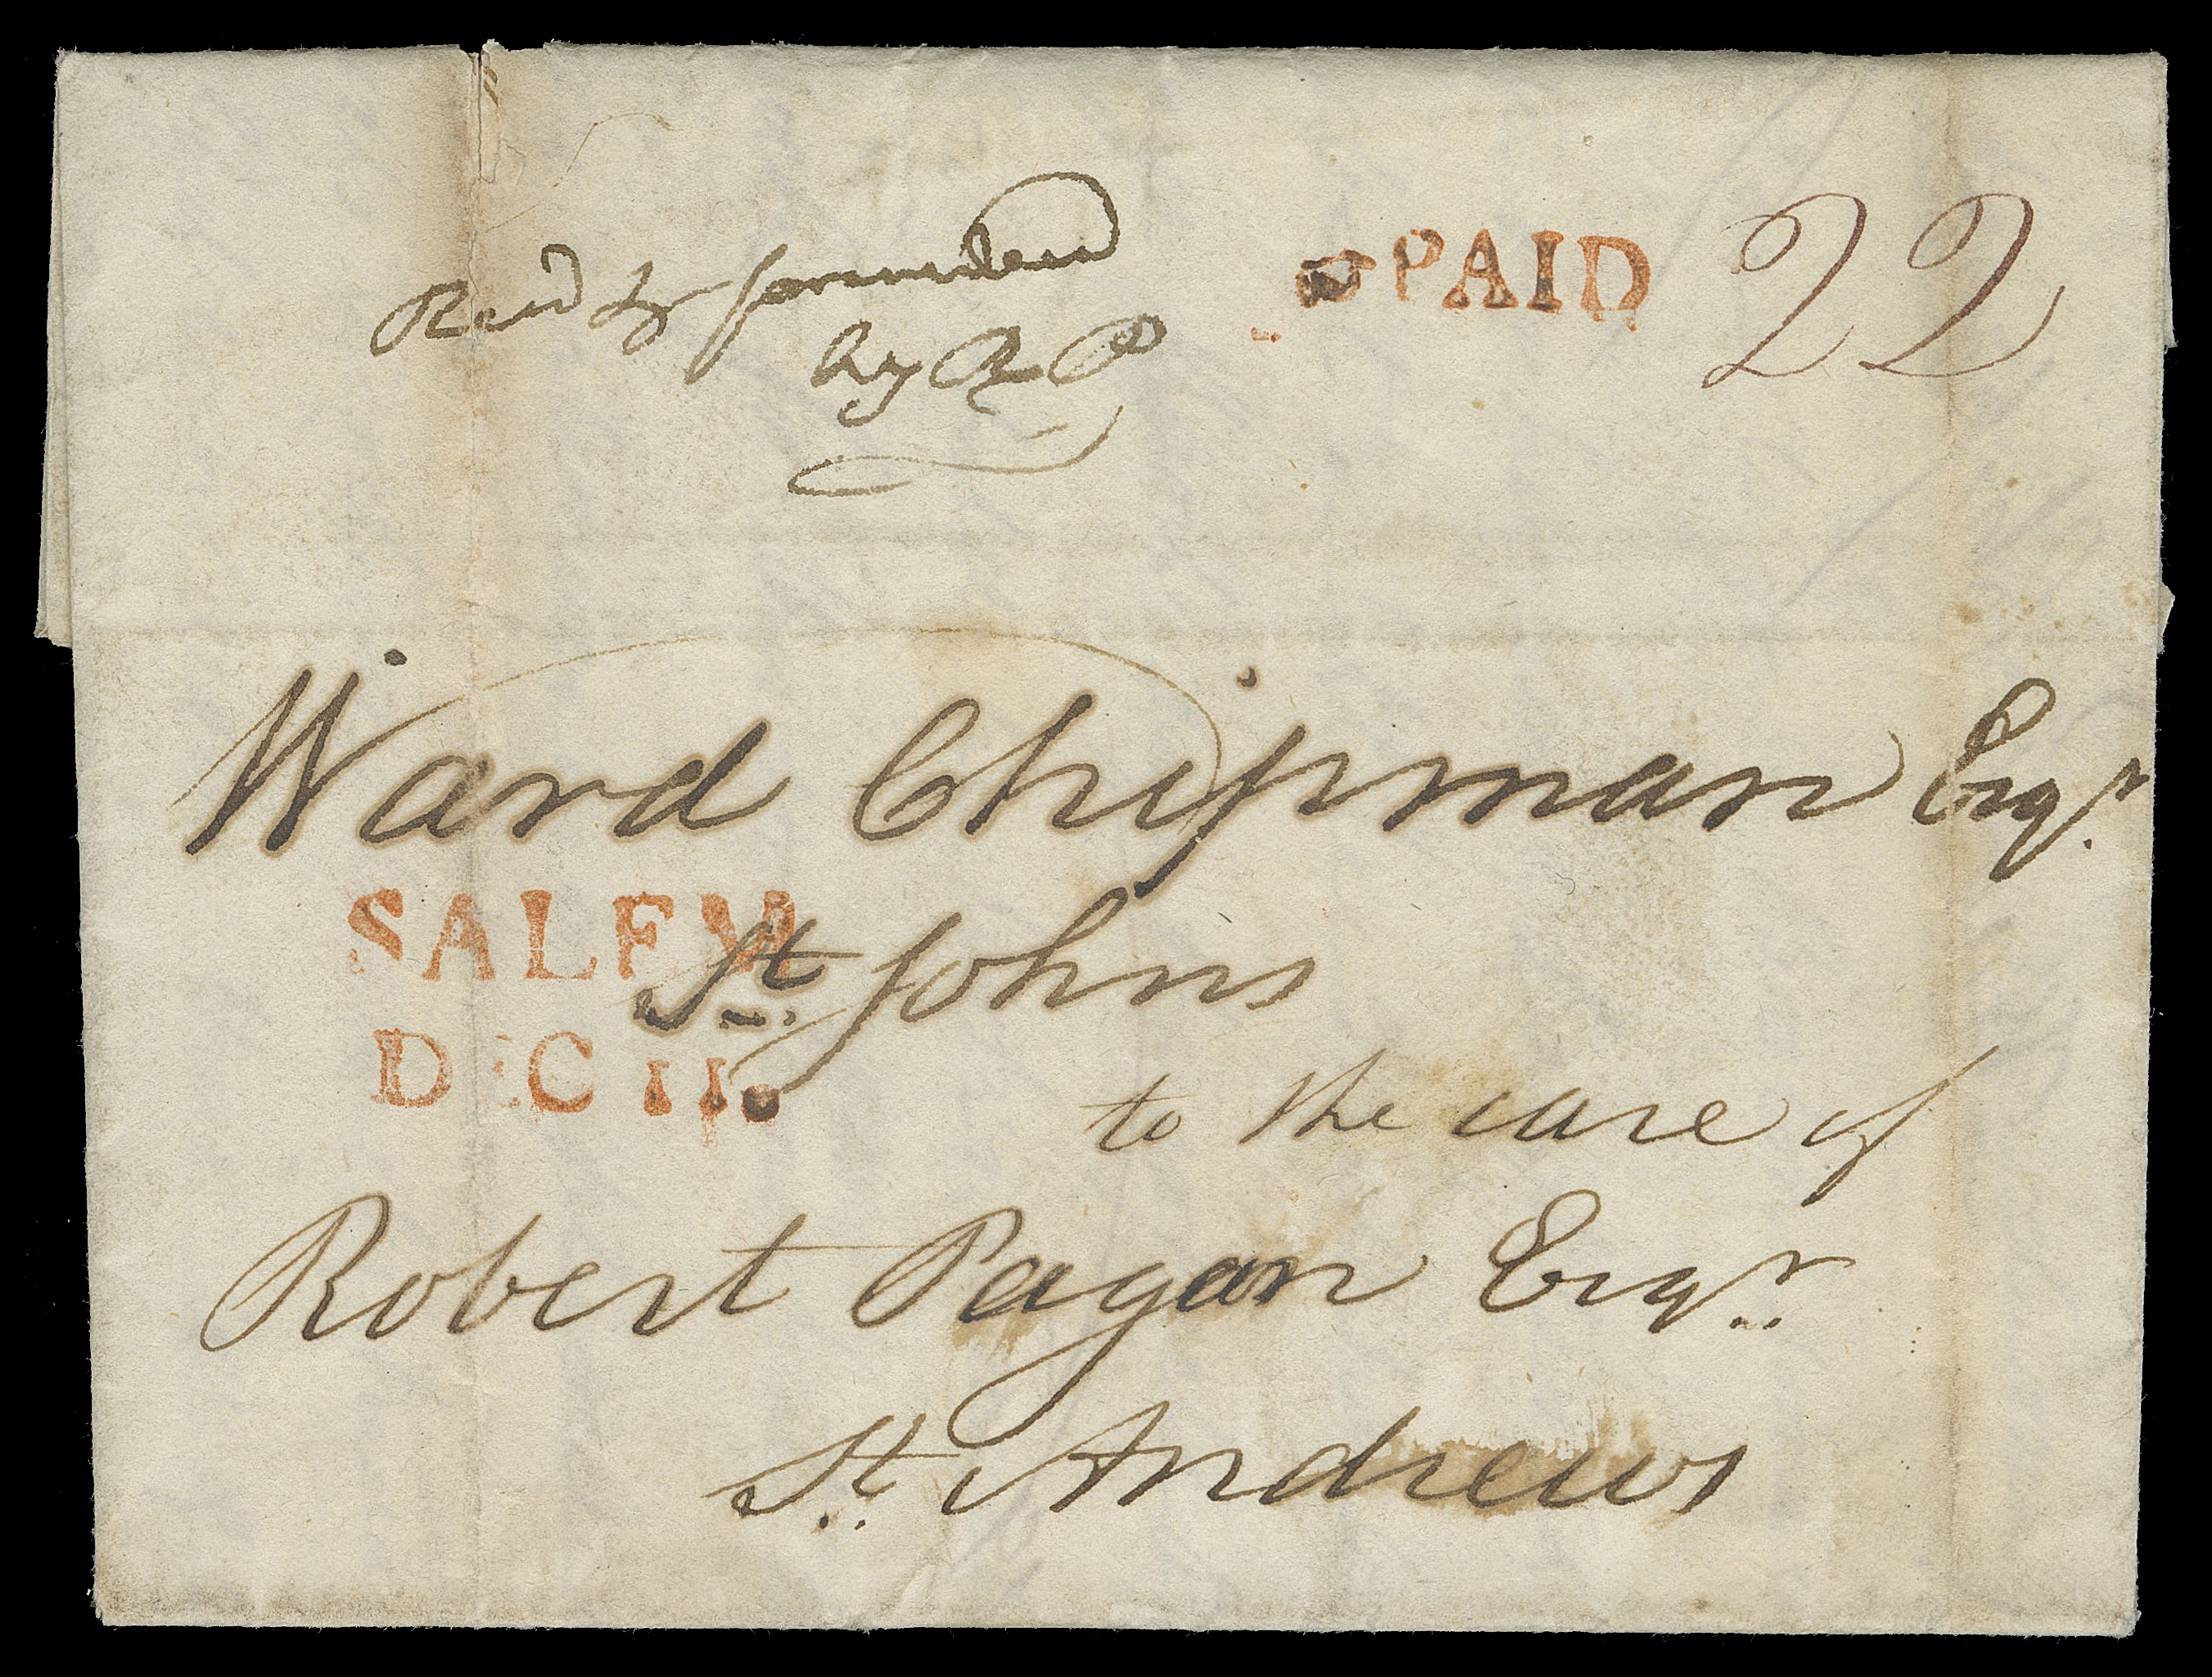 Rec'd & forwarded
by R P
PAID 22
Ward Chipman Esqr.
SALEM
St. Johns
DEC 11.
to the care of
Robert Pagan Esqr.
St. Andrews